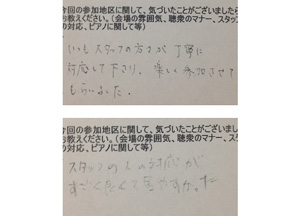 今回の参加地区に関して、気づいたことがございましたら
お教えください。(会場の雰囲気、聴衆のマナー、スタッフ
の対応、ピアノに関して等)
いつもスタッフの方々が丁寧に
対応して下さり、楽しく参加させて
もらいました。
今回の参加地区に関して、気づいたことがございました
お教えください。(会場の雰囲気、聴衆のマナー、ス
の対応、ピアノに関して等)
スタッフの人の対応が
すごく悪くて